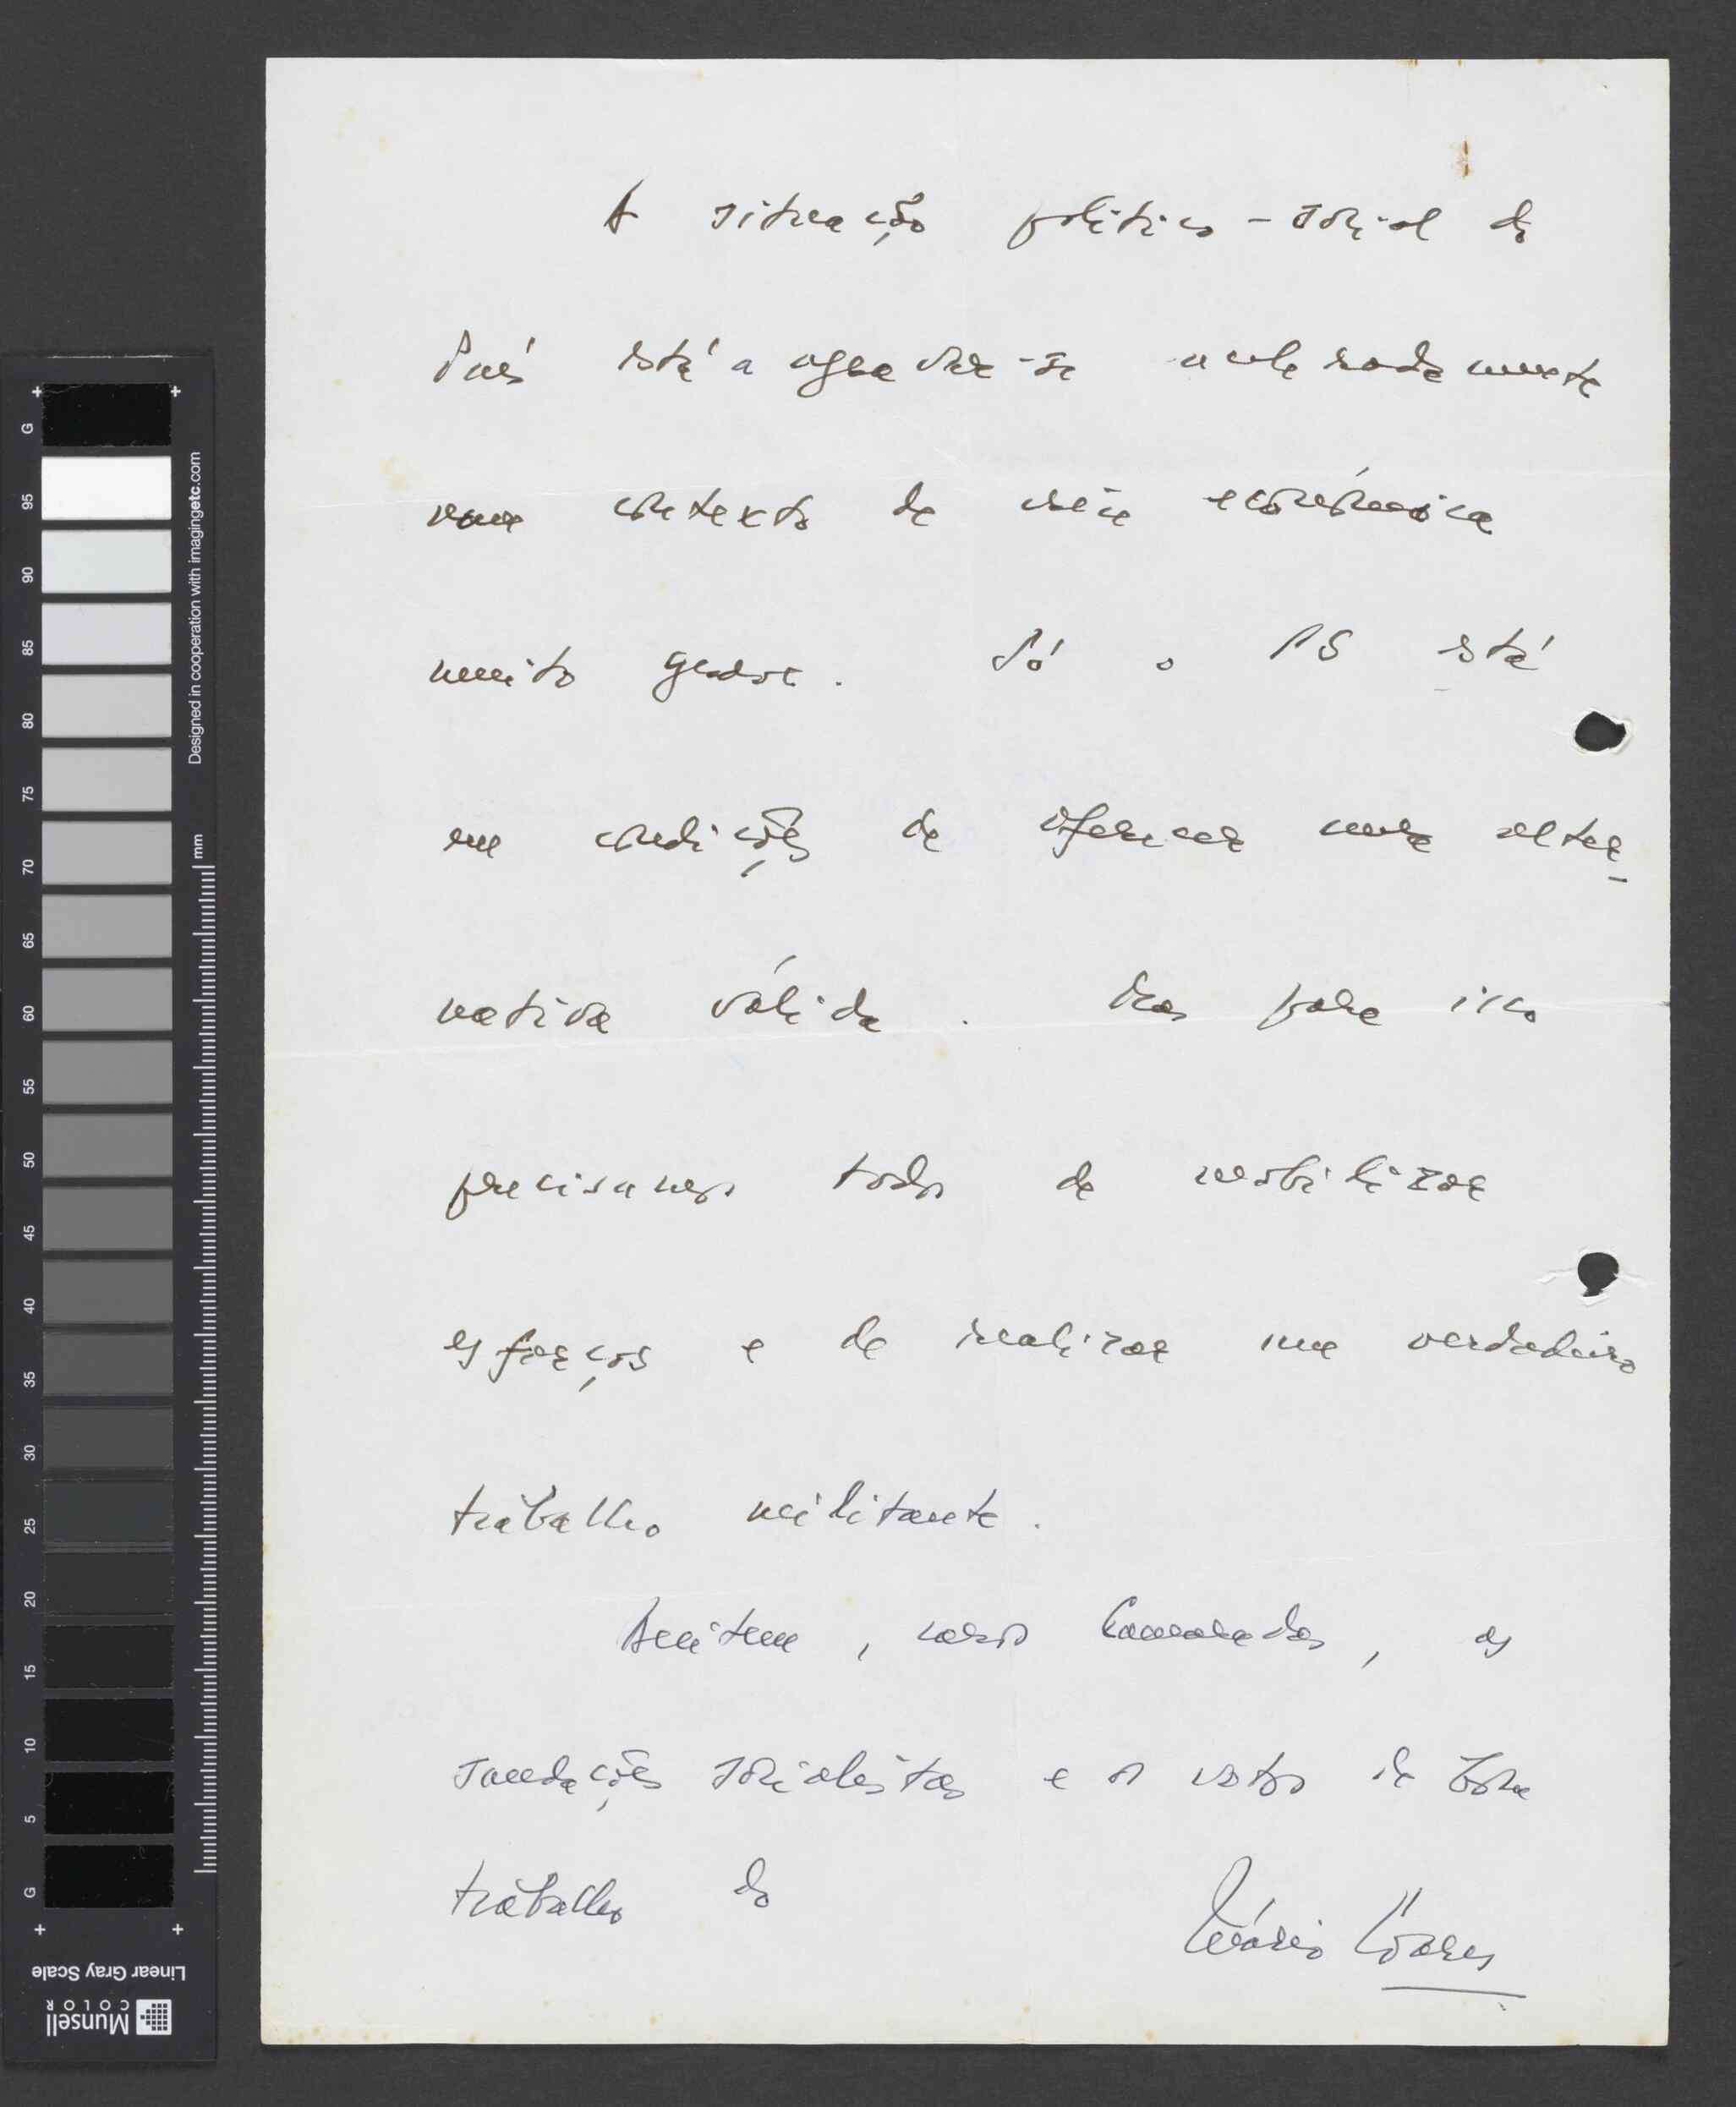 A situação político-social do
País está a agravar-se aceleradamente
num contexto de crise económica
muito grave. Só o PS está
em condições de oferecer uma alter-
nativa válida. Mas para isso
precisamos todos de mobilizar
esforços e de realizar um verdadeiro
trabalho militante.
Aceitem, caros Camaradas, as
saudações socialistas e os votos de bom
trabalho do
Mário Soares
G
95
90
85
80
75
70
65
60
55
50
45
40
35
30
25
20
15
10
5
G
mm
Designed in cooperation with imagingetc.com
Linear Gray Scale
Munsell
COLOR